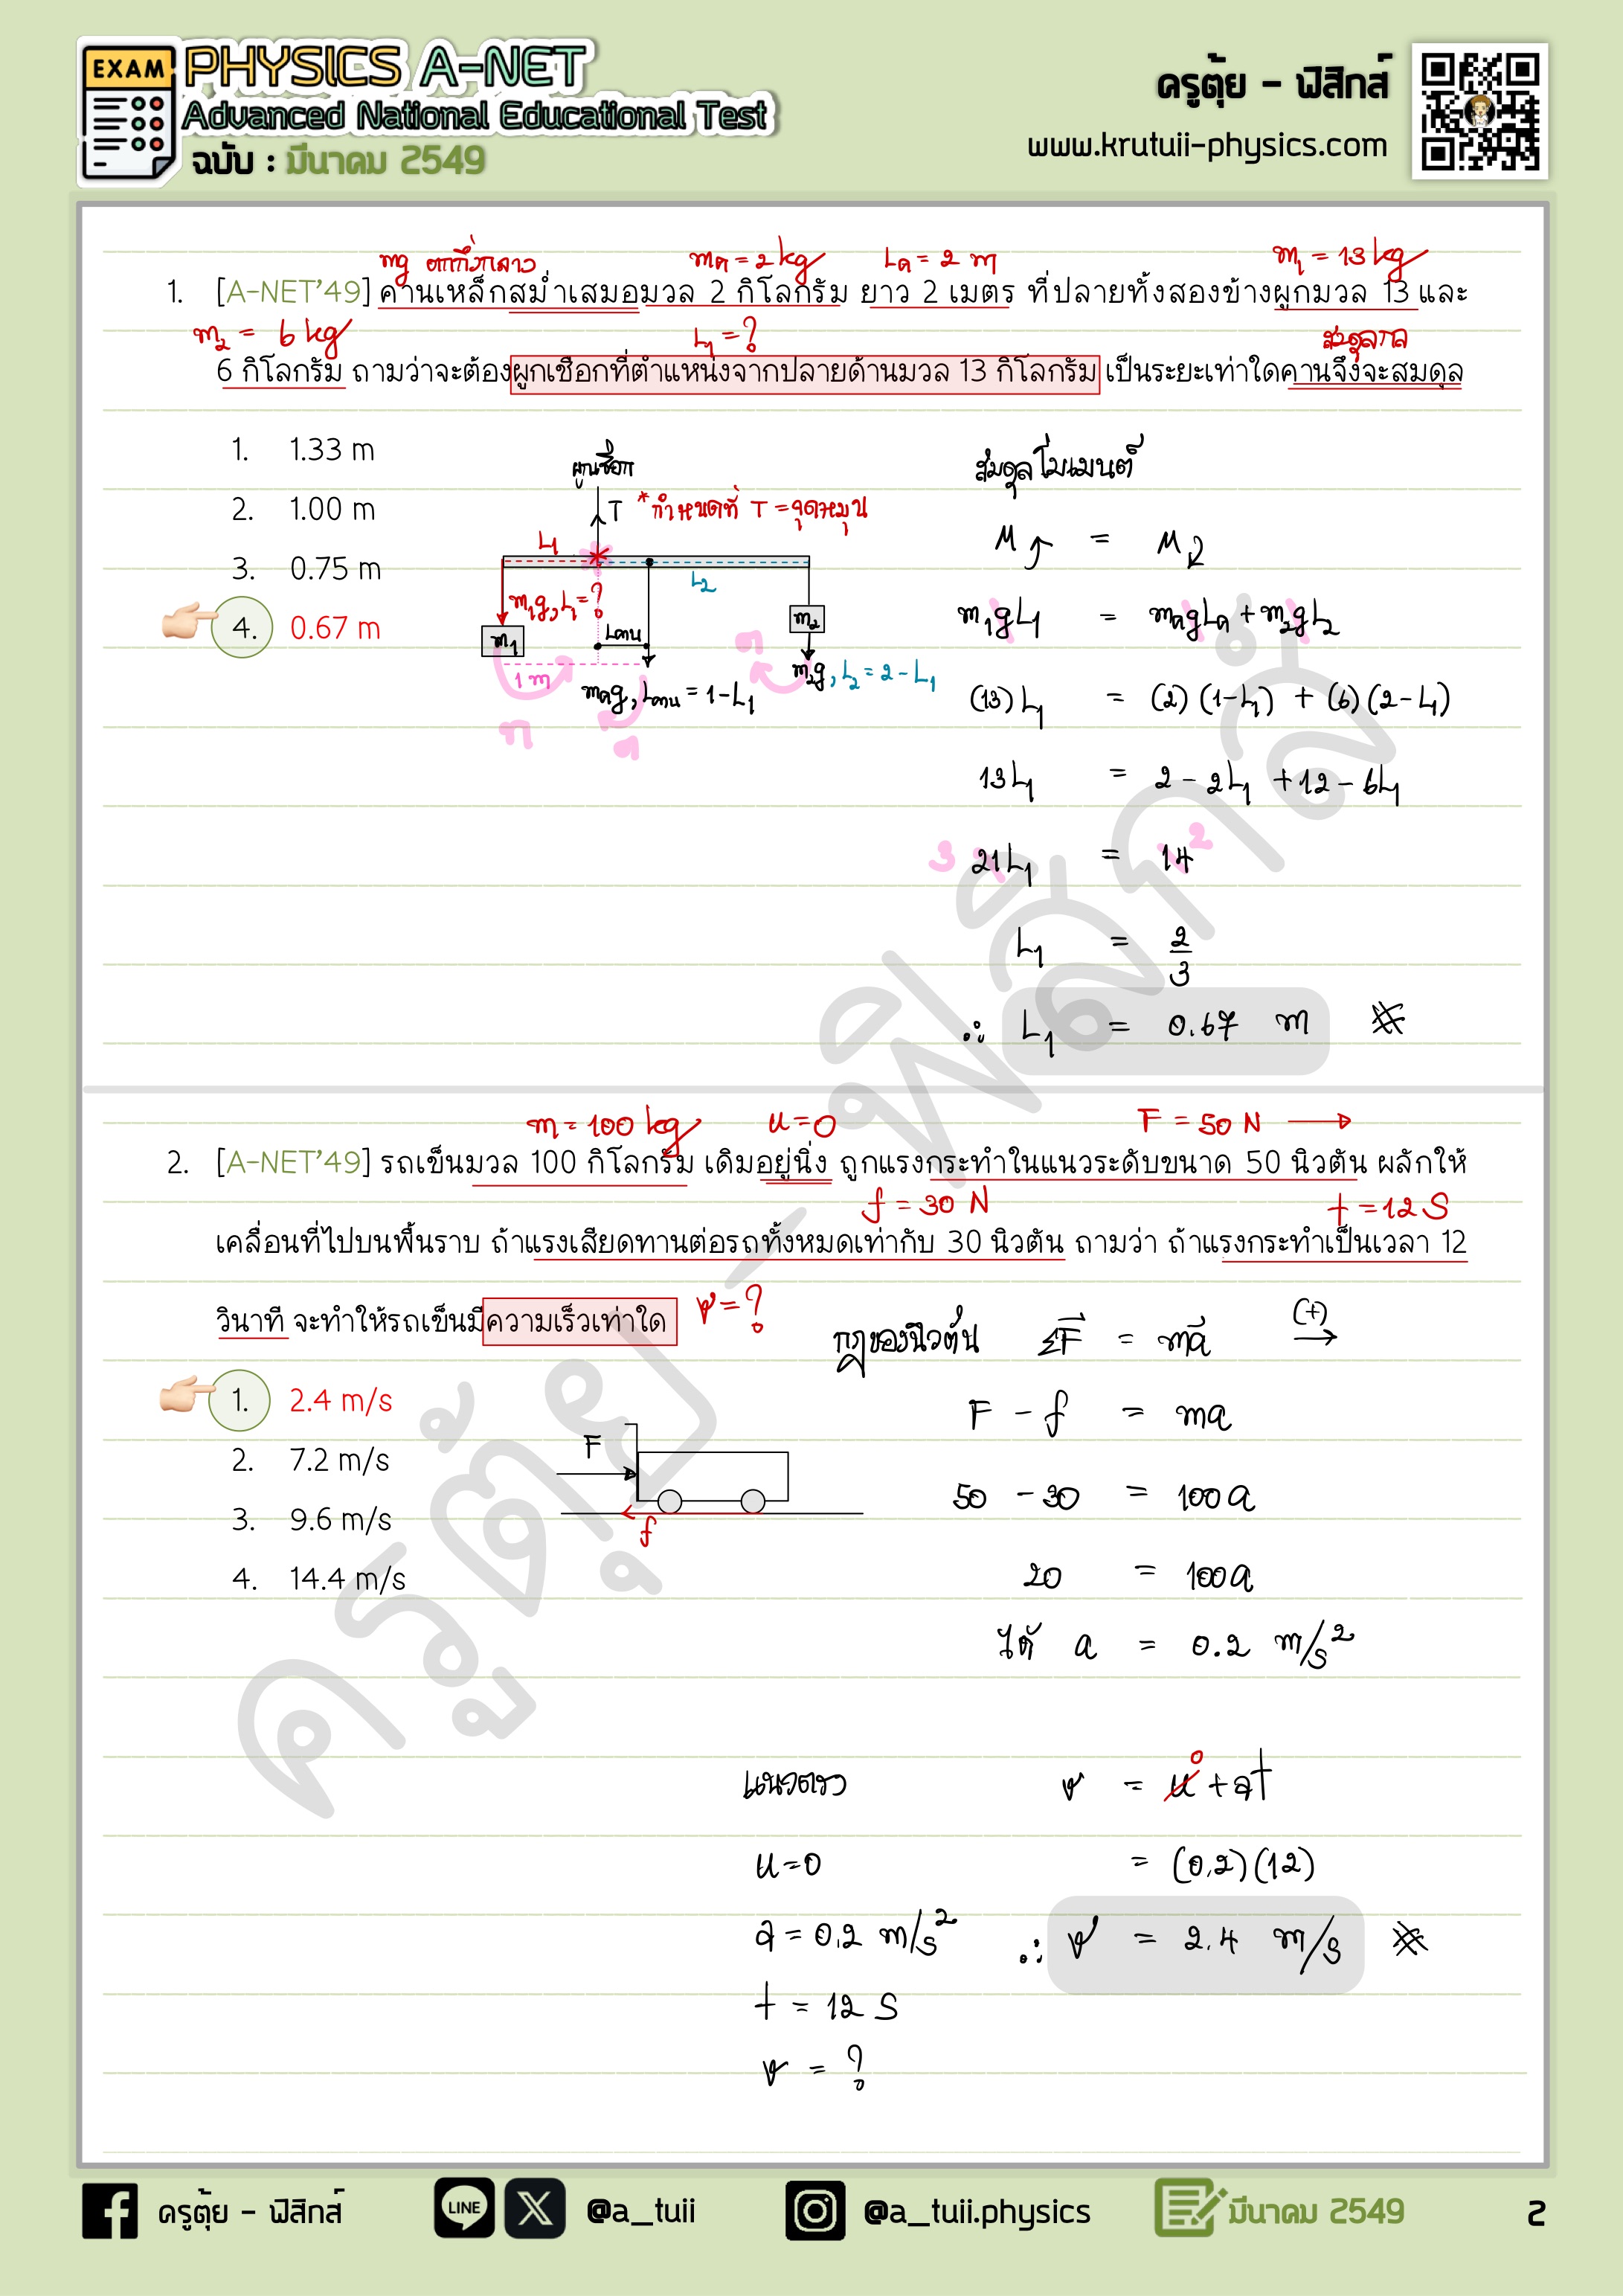 EXAM
PHYSICS A-NET
Advanced National Educational Test
ฉบับ : มีนาคม 2549
ครูตุ้ย - ฟิสิกส์
www.krutuii-physics.com
mg ตกกึ่งกลาง
mค = 2 kg
Lค = 2 m
m₁ = 13 kg
1. [A-NET'49] คานเหล็กสม่ำเสมอมวล 2 กิโลกรัม ยาว 2 เมตร ที่ปลายทั้งสองข้างผูกมวล 13 และ
m₂ = 6 kg
L₁ = ?
สมดุลกล
6 กิโลกรัม ถามว่าจะต้องผูกเชือกที่ตำแหน่งจากปลายด้านมวล 13 กิโลกรัม เป็นระยะเท่าใดคานจึงจะสมดุล
1. 1.33 m
2. 1.00 m
3. 0.75 m
4. 0.67 m
ผูกเชือก
T *กำหนดที่ T = จุดหมุน
L₁
L₂
m₁g, L₁ = ?
m₁
Lคาน
m₂
1 m
mคg, Lคาน = 1 - L₁
m₂g, L₂ = 2 - L₁
ท
ต
ต
สมดุลโมเมนต์
M = M
m₁gL₁ = mคgLค + m₂gL₂
(13)L₁ = (2)(1-L₁) + (6)(2-L₁)
13L₁ = 2 - 2L₁ + 12 - 6L₁
3 21L₁ = 14 2
L₁ = 2/3
∴ L₁ = 0.67 m
m = 100 kg
u = 0
F = 50 N →
2. [A-NET'49] รถเข็นมวล 100 กิโลกรัม เดิมอยู่นิ่ง ถูกแรงกระทำในแนวระดับขนาด 50 นิวตัน ผลักให้
f = 30 N
t = 12 s
เคลื่อนที่ไปบนพื้นราบ ถ้าแรงเสียดทานต่อรถทั้งหมดเท่ากับ 30 นิวตัน ถามว่า ถ้าแรงกระทำเป็นเวลา 12
วินาที จะทำให้รถเข็นมีความเร็วเท่าใด
v = ?
1. 2.4 m/s
2. 7.2 m/s
3. 9.6 m/s
4. 14.4 m/s
F
f
กฎของนิวตัน ΣF = ma (+) →
F - f = ma
50 - 30 = 100a
20 = 100a
ได้ a = 0.2 m/s²
แนวตรง
u = 0
a = 0.2 m/s²
t = 12 s
v = ?
v = u + at
0
= (0.2)(12)
∴ v = 2.4 m/s
ครูตุ้ย - ฟิสิกส์
ครูตุ้ย - ฟิสิกส์
LINE
@a_tuii
@a_tuii.physics
มีนาคม 2549
2